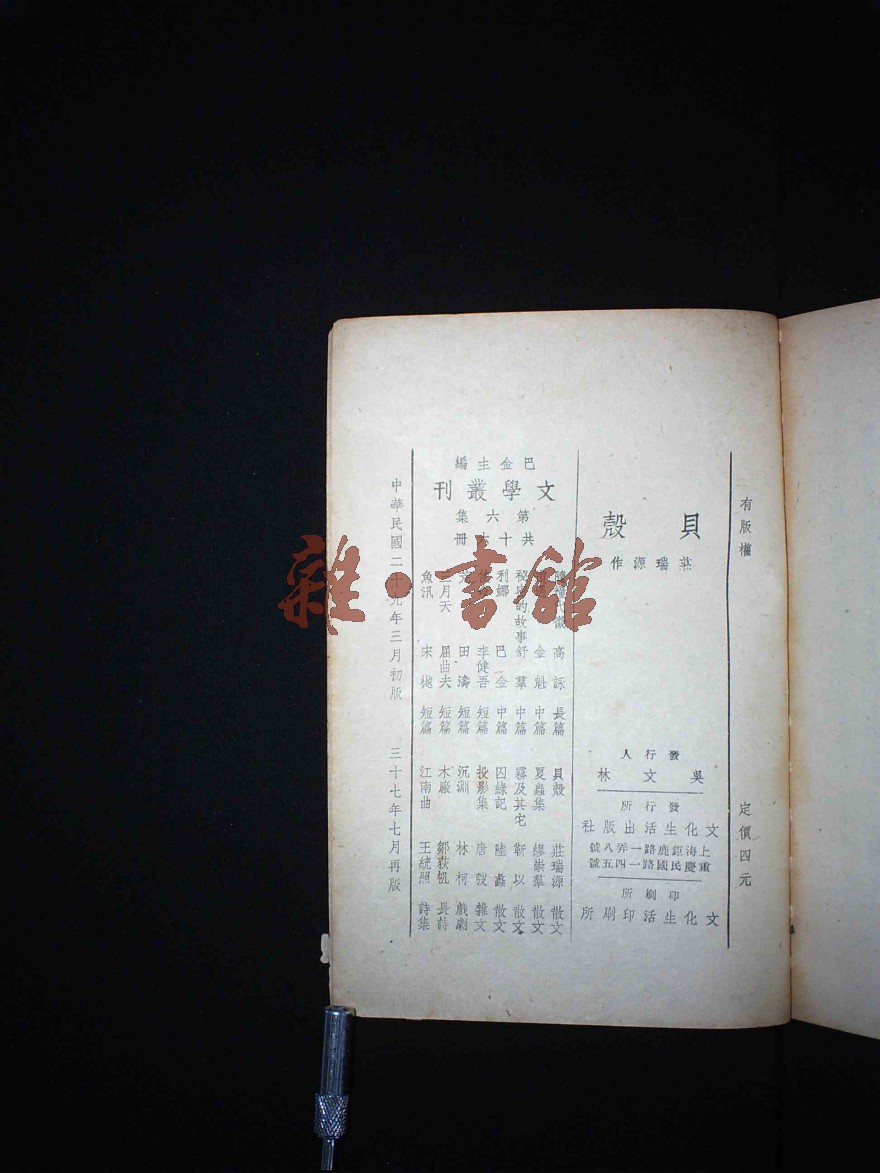 有版權
定價四元
貝殼
莊瑞源作
發行人
吳文林
發行所
文化生活出版社
上海鉅鹿路一弄八號
重慶民國路一四五號
印刷所
文化生活印刷所
巴金主編
文學叢刊
第六集
共十六冊
高詠 長篇
金魁 中篇
秘密的故事 舒羣 中篇
利娜 巴金 中篇
李健吾 短篇
田濤 短篇
三月天 屈曲夫 短篇
魚汛 宋樾 短篇
貝殼 莊瑞源 散文
夏蟲集 繆崇羣 散文
霧及其它 靳以 散文
囚綠記 陸蠡 散文
投影集 唐弢 雜文
沉淵 林柯 戲劇
木廠 鄒荻帆 長詩
江南曲 王統照 詩集
中華民國二十九年三月初版 三十七年七月再版
雜·書館